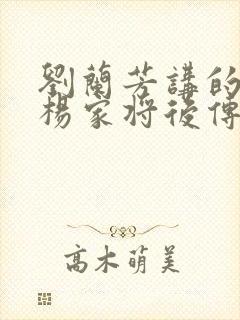 劉蘭芳講的
楊家將後傳
高木萌美